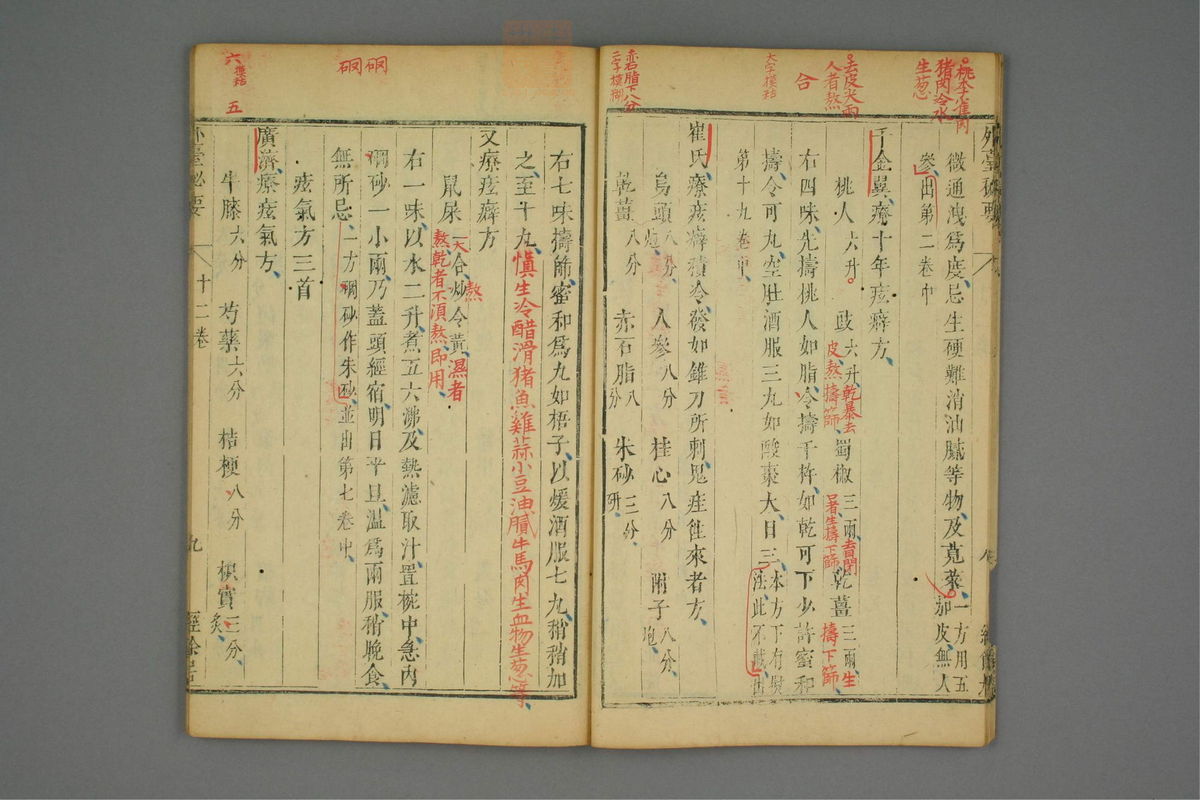 桃李雀肉
猪肉冷水
生葱
去皮尖兩
人者熬
合
大字模糊
赤石脂下八分
二字模糊
微通洩爲度忌生硬難消油膩等物及莧菜一方用五
加皮無人
參出第二卷中
千金翼療十年痃癖方
桃人六升 豉六升乾暴去
皮熬擣篩 蜀椒三兩
生擣下篩 乾薑三兩生
擣下篩
右四味先擣桃人如脂令擣千杵如乾可下少許蜜和
擣令可丸空肚酒服三丸如酸棗大日三本方下有熨
法此不載出
第十九卷中
崔氏療痃癖積冷發如錐刀所刺鬼疰往來者方
烏頭八分
炮 人參八分 桂心八分 附子八分
炮
乾薑八分 赤石脂八
分 朱砂三分
研
硇 硇
六模糊
五
右七味擣篩蜜和爲丸如梧子以煖酒服七丸稍稍加
之至十丸慎生冷醋滑猪魚雞蒜小豆油膩牛馬肉生血物生葱等
又療痃癖方
鼠屎一大合炒令黃濕者
熬乾者不須熬即用
右一味以水二升煮五六沸及熱濾取汁置椀中急内
硇砂一小兩乃蓋頭經宿明日平旦溫爲兩服稍晚食
無所忌一方硇砂作朱砂並出第七卷中
痃氣方三首
廣濟療痃氣方
牛膝六分 芍藥六分 桔梗八分 枳實三分
炙
外臺祕要 十二卷 九 經餘居